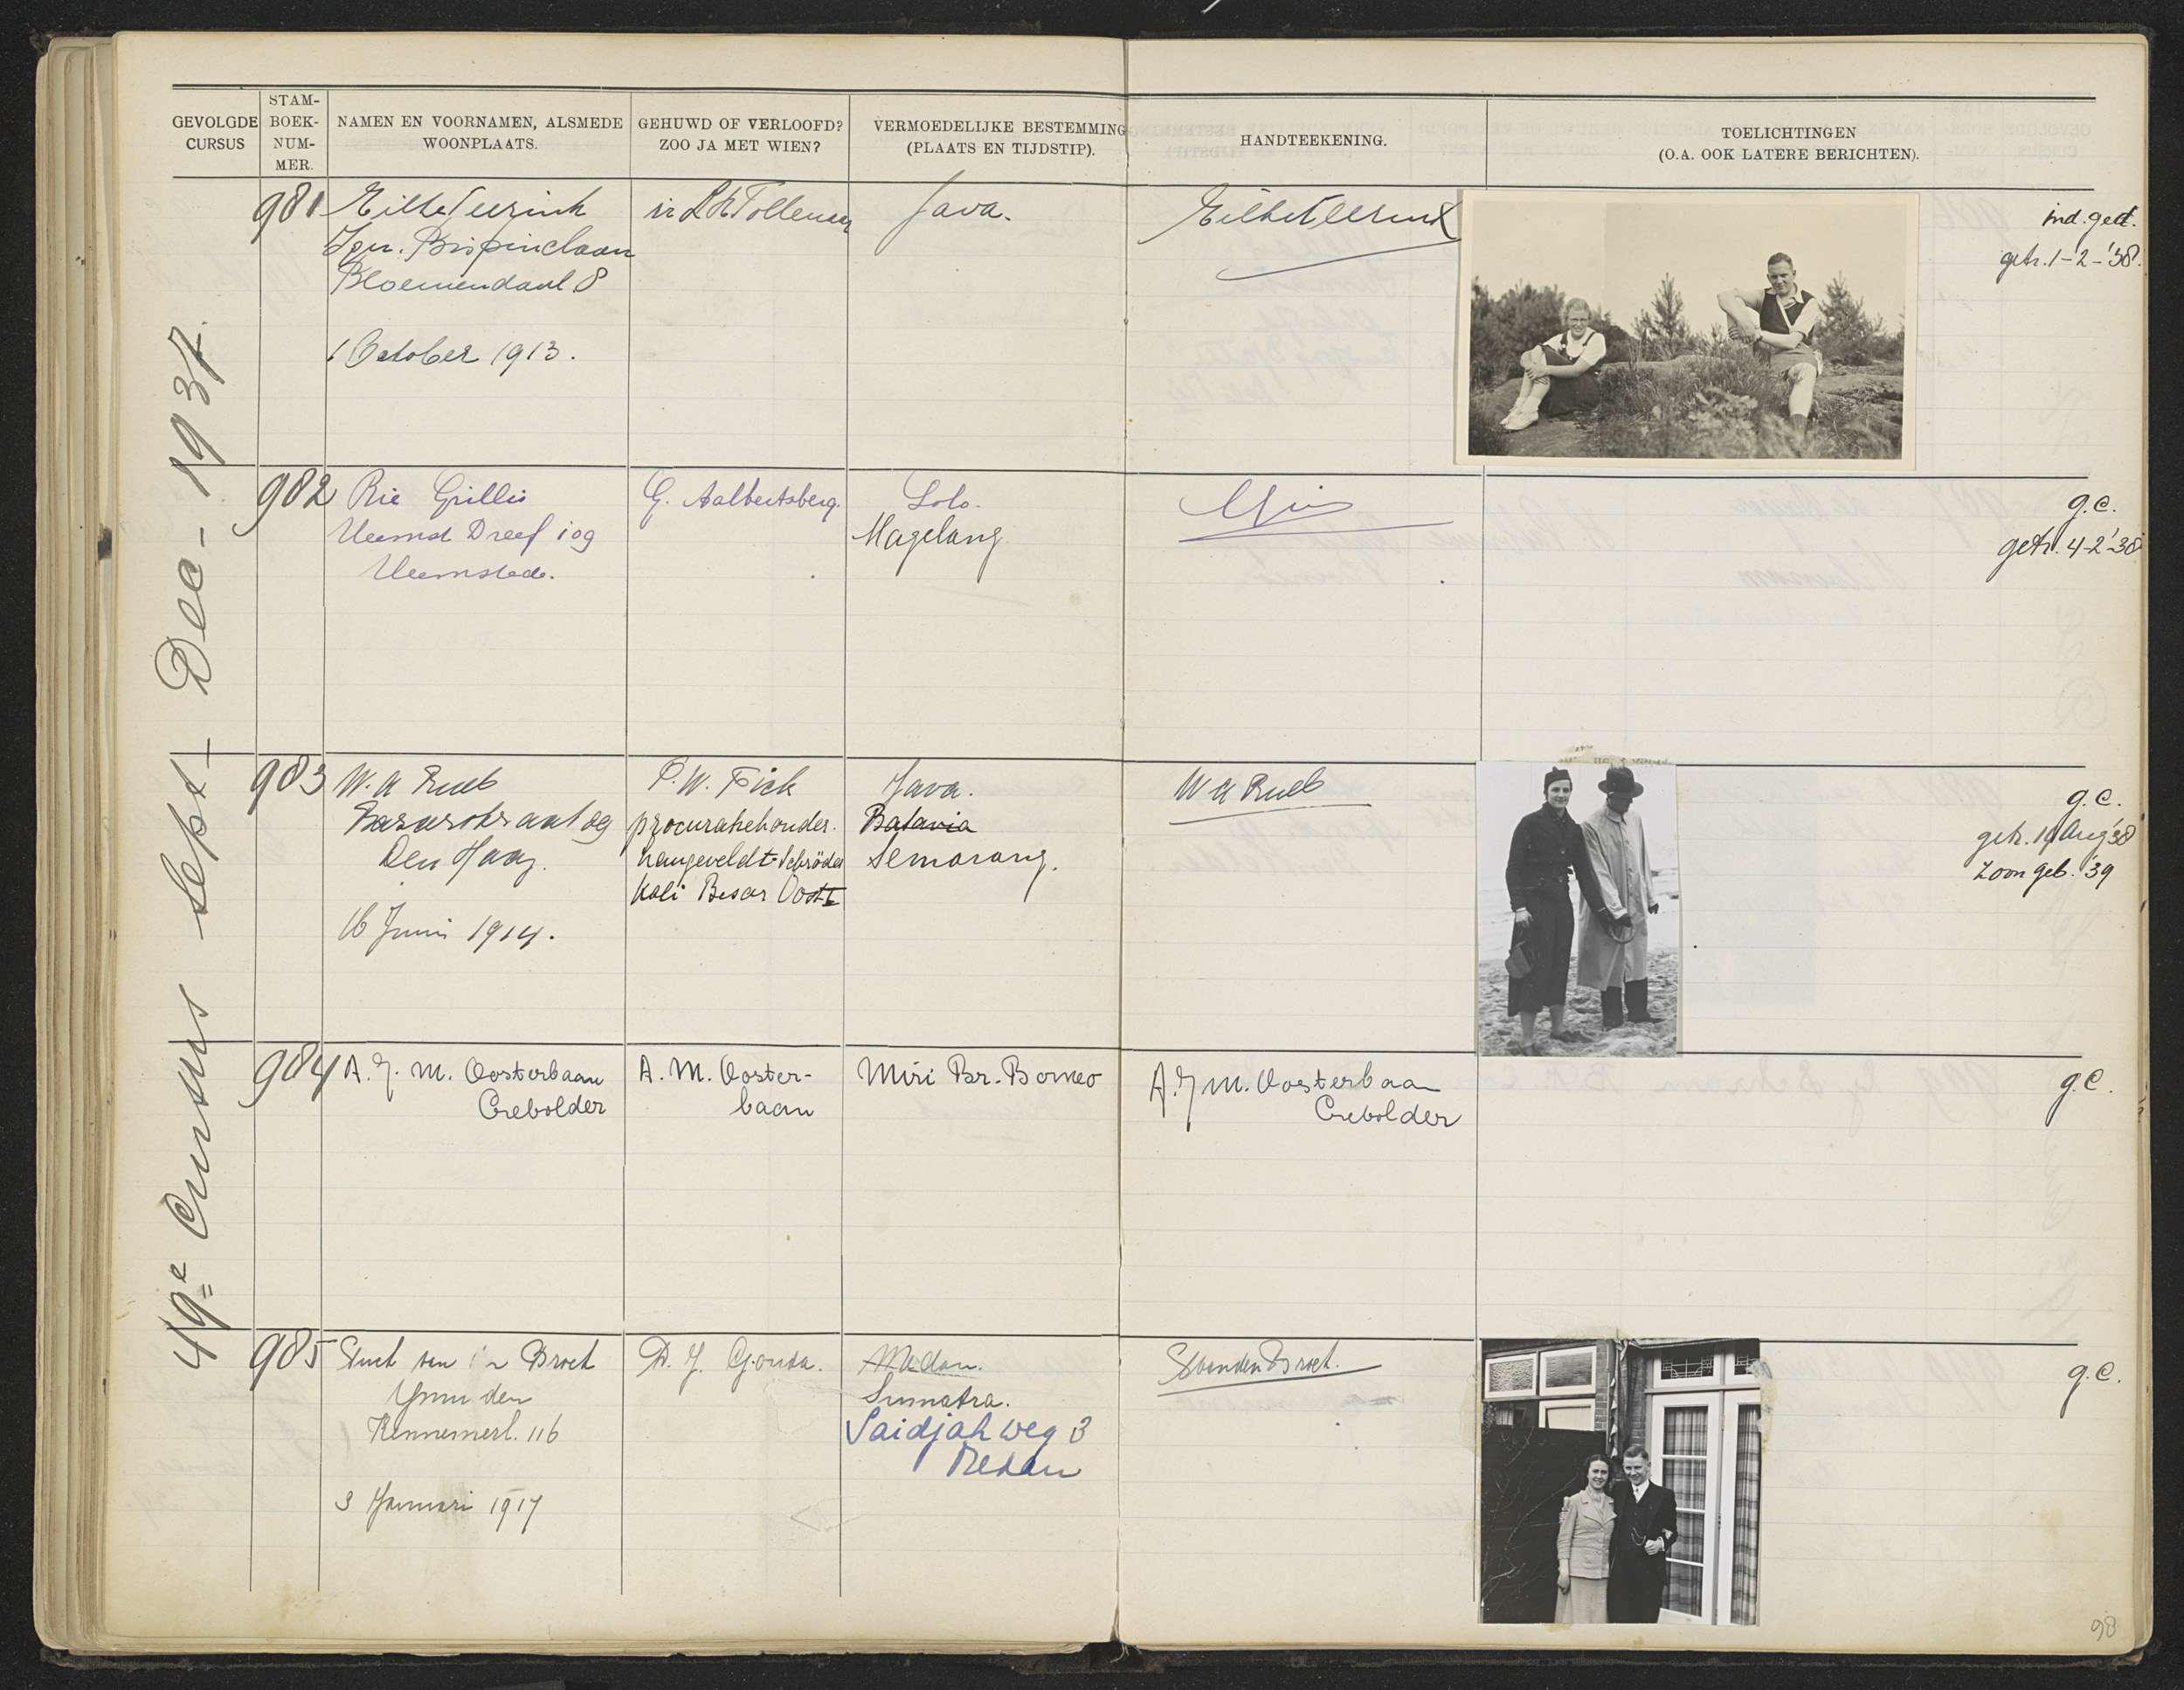 GEVOLGDE CURSUS
STAM-BOEK-NUM-MER.
NAMEN EN VOORNAMEN, ALSMEDE WOONPLAATS.
GEHUWD OF VERLOOFD? ZOO JA MET WIEN?
VERMOEDELIJKE BESTEMMING (PLAATS EN TIJDSTIP).
HANDTEEKENING.
TOELICHTINGEN
(O.A. OOK LATERE BERICHTEN).
49e Cursus Sept - Dec - 1937.
981
Jgn. Bispinclaan
Bloemendaal 8
1 October 1913.
Java.
ind. ged.
getr. 1-2-'38.
982
Rie Grillis
Heemst Dreef 109
Heemstede.
G. Aalbertsberg.
Solo.
Magelang
g.c.
getr. 4-2-'38
983
W. A Rueb
Den Haag.
16 Juni 1914.
P. W. Fick
procuratiehouder.
Hengeveldt-Schröder
Kali Besar Oost
Java.
Batavia
Semarang.
W A Rueb
g.c.
getr. 19 Aug '38
Zoon geb. '39
984
A. J. M. Oosterbaan
Crebolder
A. M. Ooster-
baan
Miri Br. Borneo
A. J M. Oosterbaan
Crebolder
g.c.
985
van den Broek
Ymuiden
Kennemerl. 116
3 Januari 1917
D. J. Gouda.
Medan.
Sumatra.
Saidjahweg 3
Medan
S van den Broek.
g.c.
98